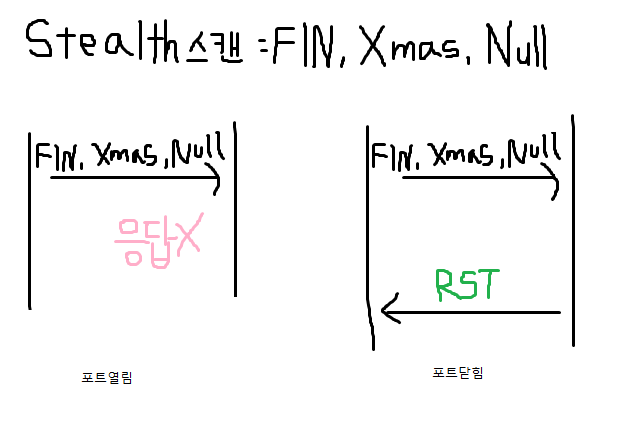 Stealth스캔 = FIN, Xmas, Null
FIN, Xmas, Null
응답X
포트열림
FIN, Xmas, Null
RST
포트닫힘